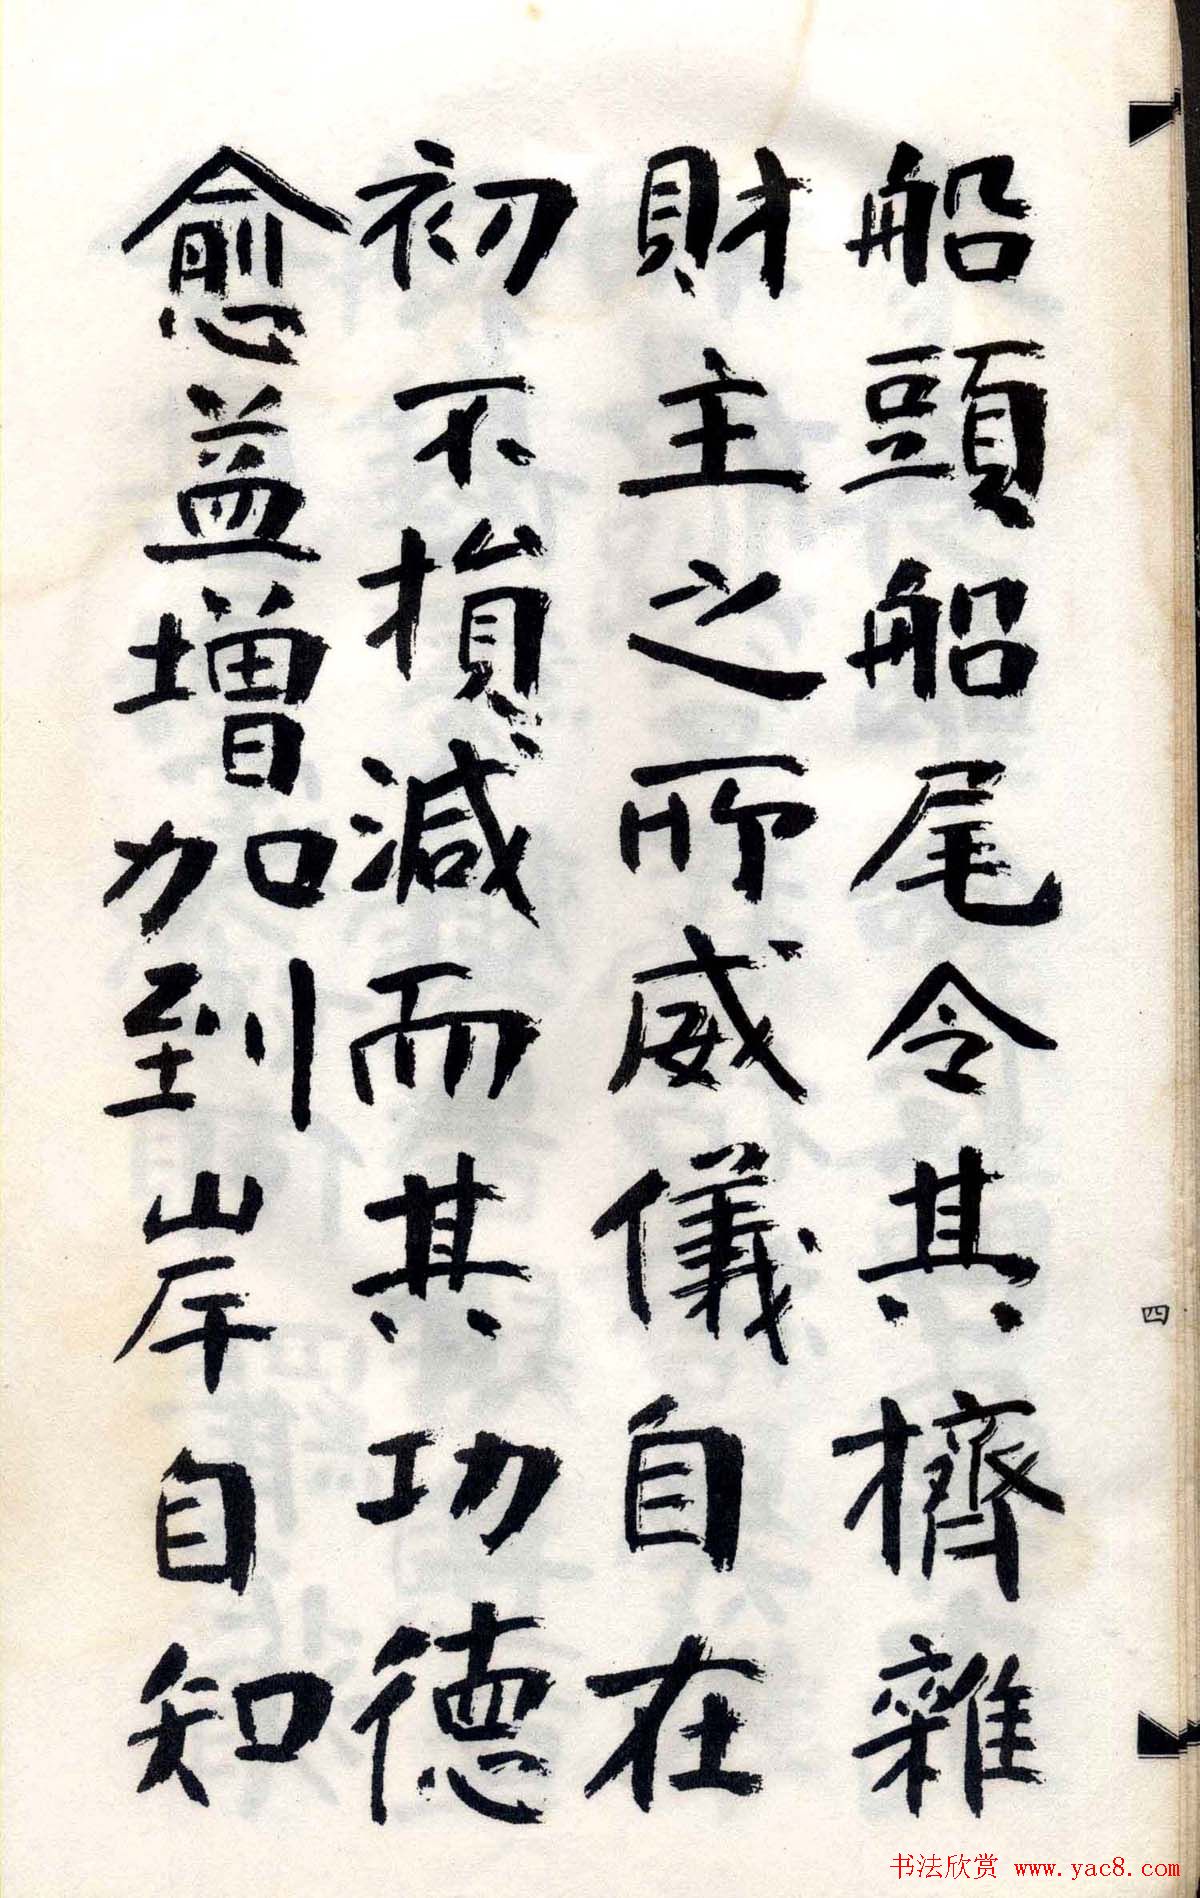 船頭船尾令其擠雜
財主之所威儀自在
初不損減而其功德
愈益增加到岸自知
四
书法欣赏 www.yac8.com